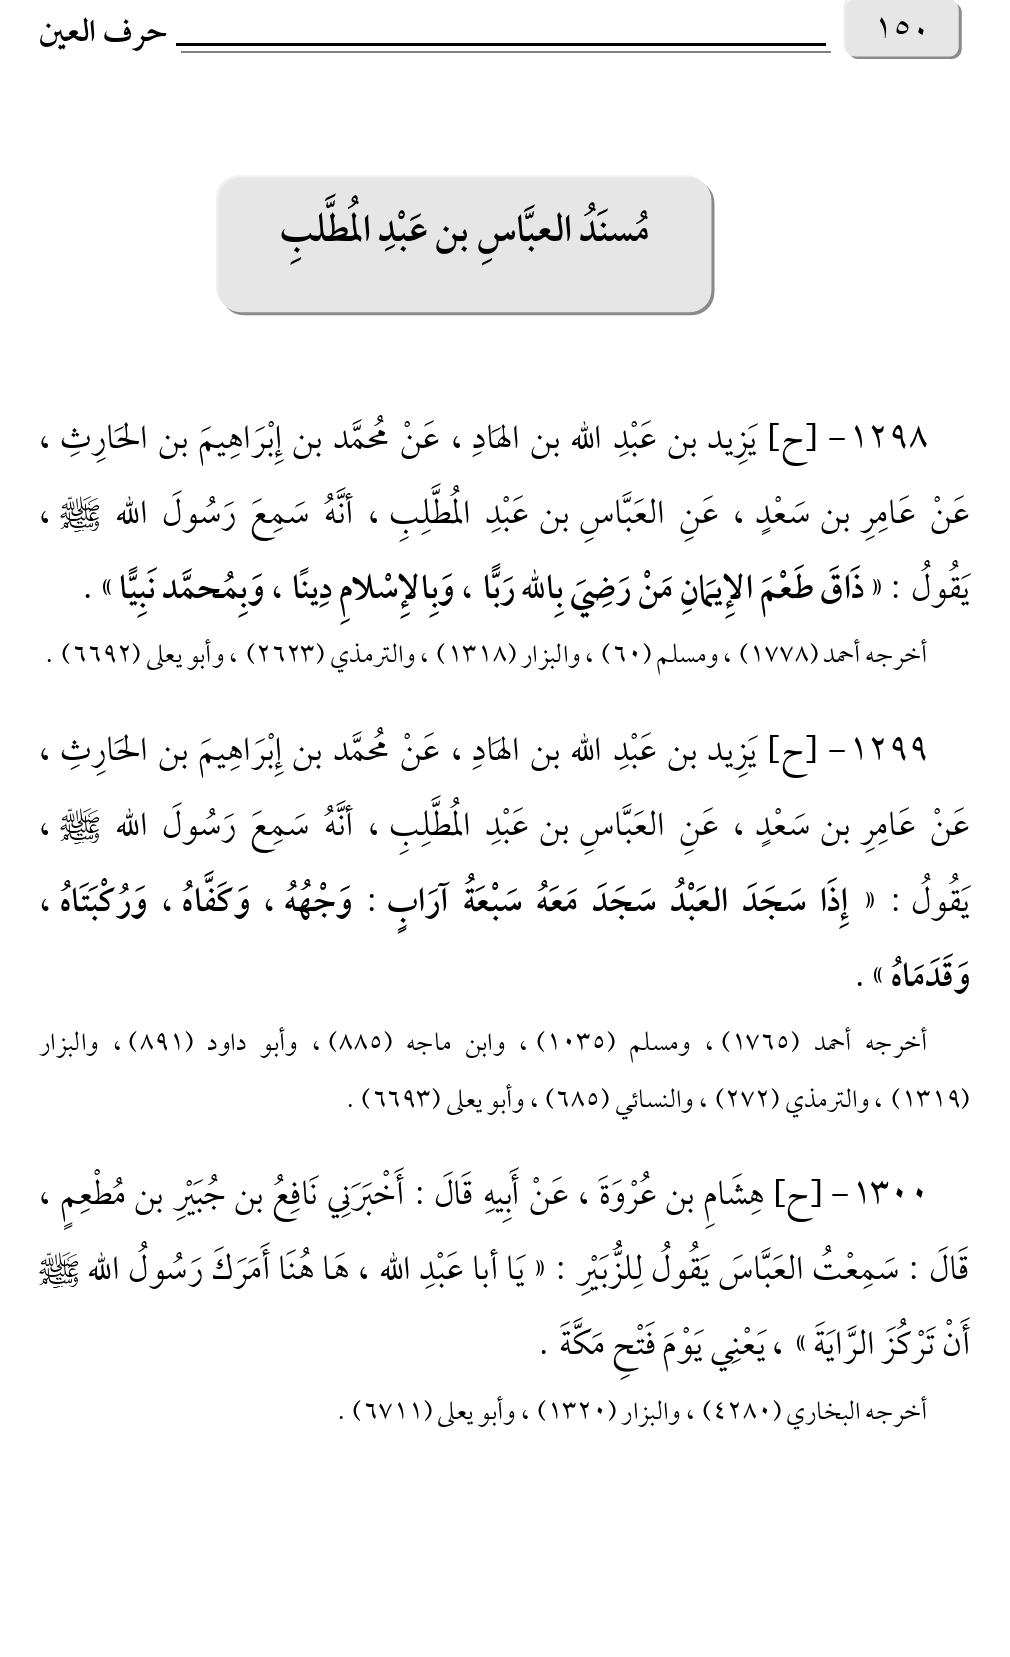 ١٥٠ حرف العين
مُسنَدُ العبَّاسِ بن عَبْدِ المُطَّلبِ
١٢٩٨- [ح] يَزِيد بن عَبْدِ الله بن الهَادِ ، عَنْ مُحمَّد بن إِبْرَاهِيمَ بن الحَارِثِ ،
عَنْ عَامِرِ بن سَعْدٍ ، عَنِ العَبَّاسِ بن عَبْدِ المُطَّلِبِ ، أنَّهُ سَمِعَ رَسُولَ الله ﷺ ،
يَقُولُ : « ذَاقَ طَعْمَ الإِيمَانِ مَنْ رَضِيَ بِالله رَبًّا ، وَبِالإِسْلامِ دِينًا ، وَبِمُحمَّد نَبِيًّا » .
أخرجه أحمد (١٧٧٨) ، ومسلم (٦٠) ، والبزار (١٣١٨) ، والترمذي (٢٦٢٣) ، وأبو يعلى (٦٦٩٢) .
١٢٩٩- [ح] يَزِيد بن عَبْدِ الله بن الهَادِ ، عَنْ مُحمَّد بن إِبْرَاهِيمَ بن الحَارِثِ ،
عَنْ عَامِرِ بن سَعْدٍ ، عَنِ العَبَّاسِ بن عَبْدِ المُطَّلِبِ ، أنَّهُ سَمِعَ رَسُولَ الله ﷺ ،
يَقُولُ : « إِذَا سَجَدَ العَبْدُ سَجَدَ مَعَهُ سَبْعَةُ آرَابٍ : وَجْهُهُ ، وَكَفَّاهُ ، وَرُكْبَتَاهُ ،
وَقَدَمَاهُ » .
أخرجه أحمد (١٧٦٥) ، ومسلم (١٠٣٥) ، وابن ماجه (٨٨٥) ، وأبو داود (٨٩١) ، والبزار
(١٣١٩) ، والترمذي (٢٧٢) ، والنسائي (٦٨٥) ، وأبو يعلى (٦٦٩٣) .
١٣٠٠- [ح] هِشَامِ بن عُرْوَةَ ، عَنْ أَبِيهِ قَالَ : أَخْبَرَنِي نَافِعُ بن جُبَيْرِ بن مُطْعِمٍ ،
قَالَ : سَمِعْتُ العَبَّاسَ يَقُولُ لِلزُّبَيْرِ : « يَا أبا عَبْدِ الله ، هَا هُنَا أَمَرَكَ رَسُولُ الله ﷺ
أَنْ تَرْكُزَ الرَّايَةَ » ، يَعْنِي يَوْمَ فَتْحِ مَكَّةَ .
أخرجه البخاري (٤٢٨٠) ، والبزار (١٣٢٠) ، وأبو يعلى (٦٧١١) .